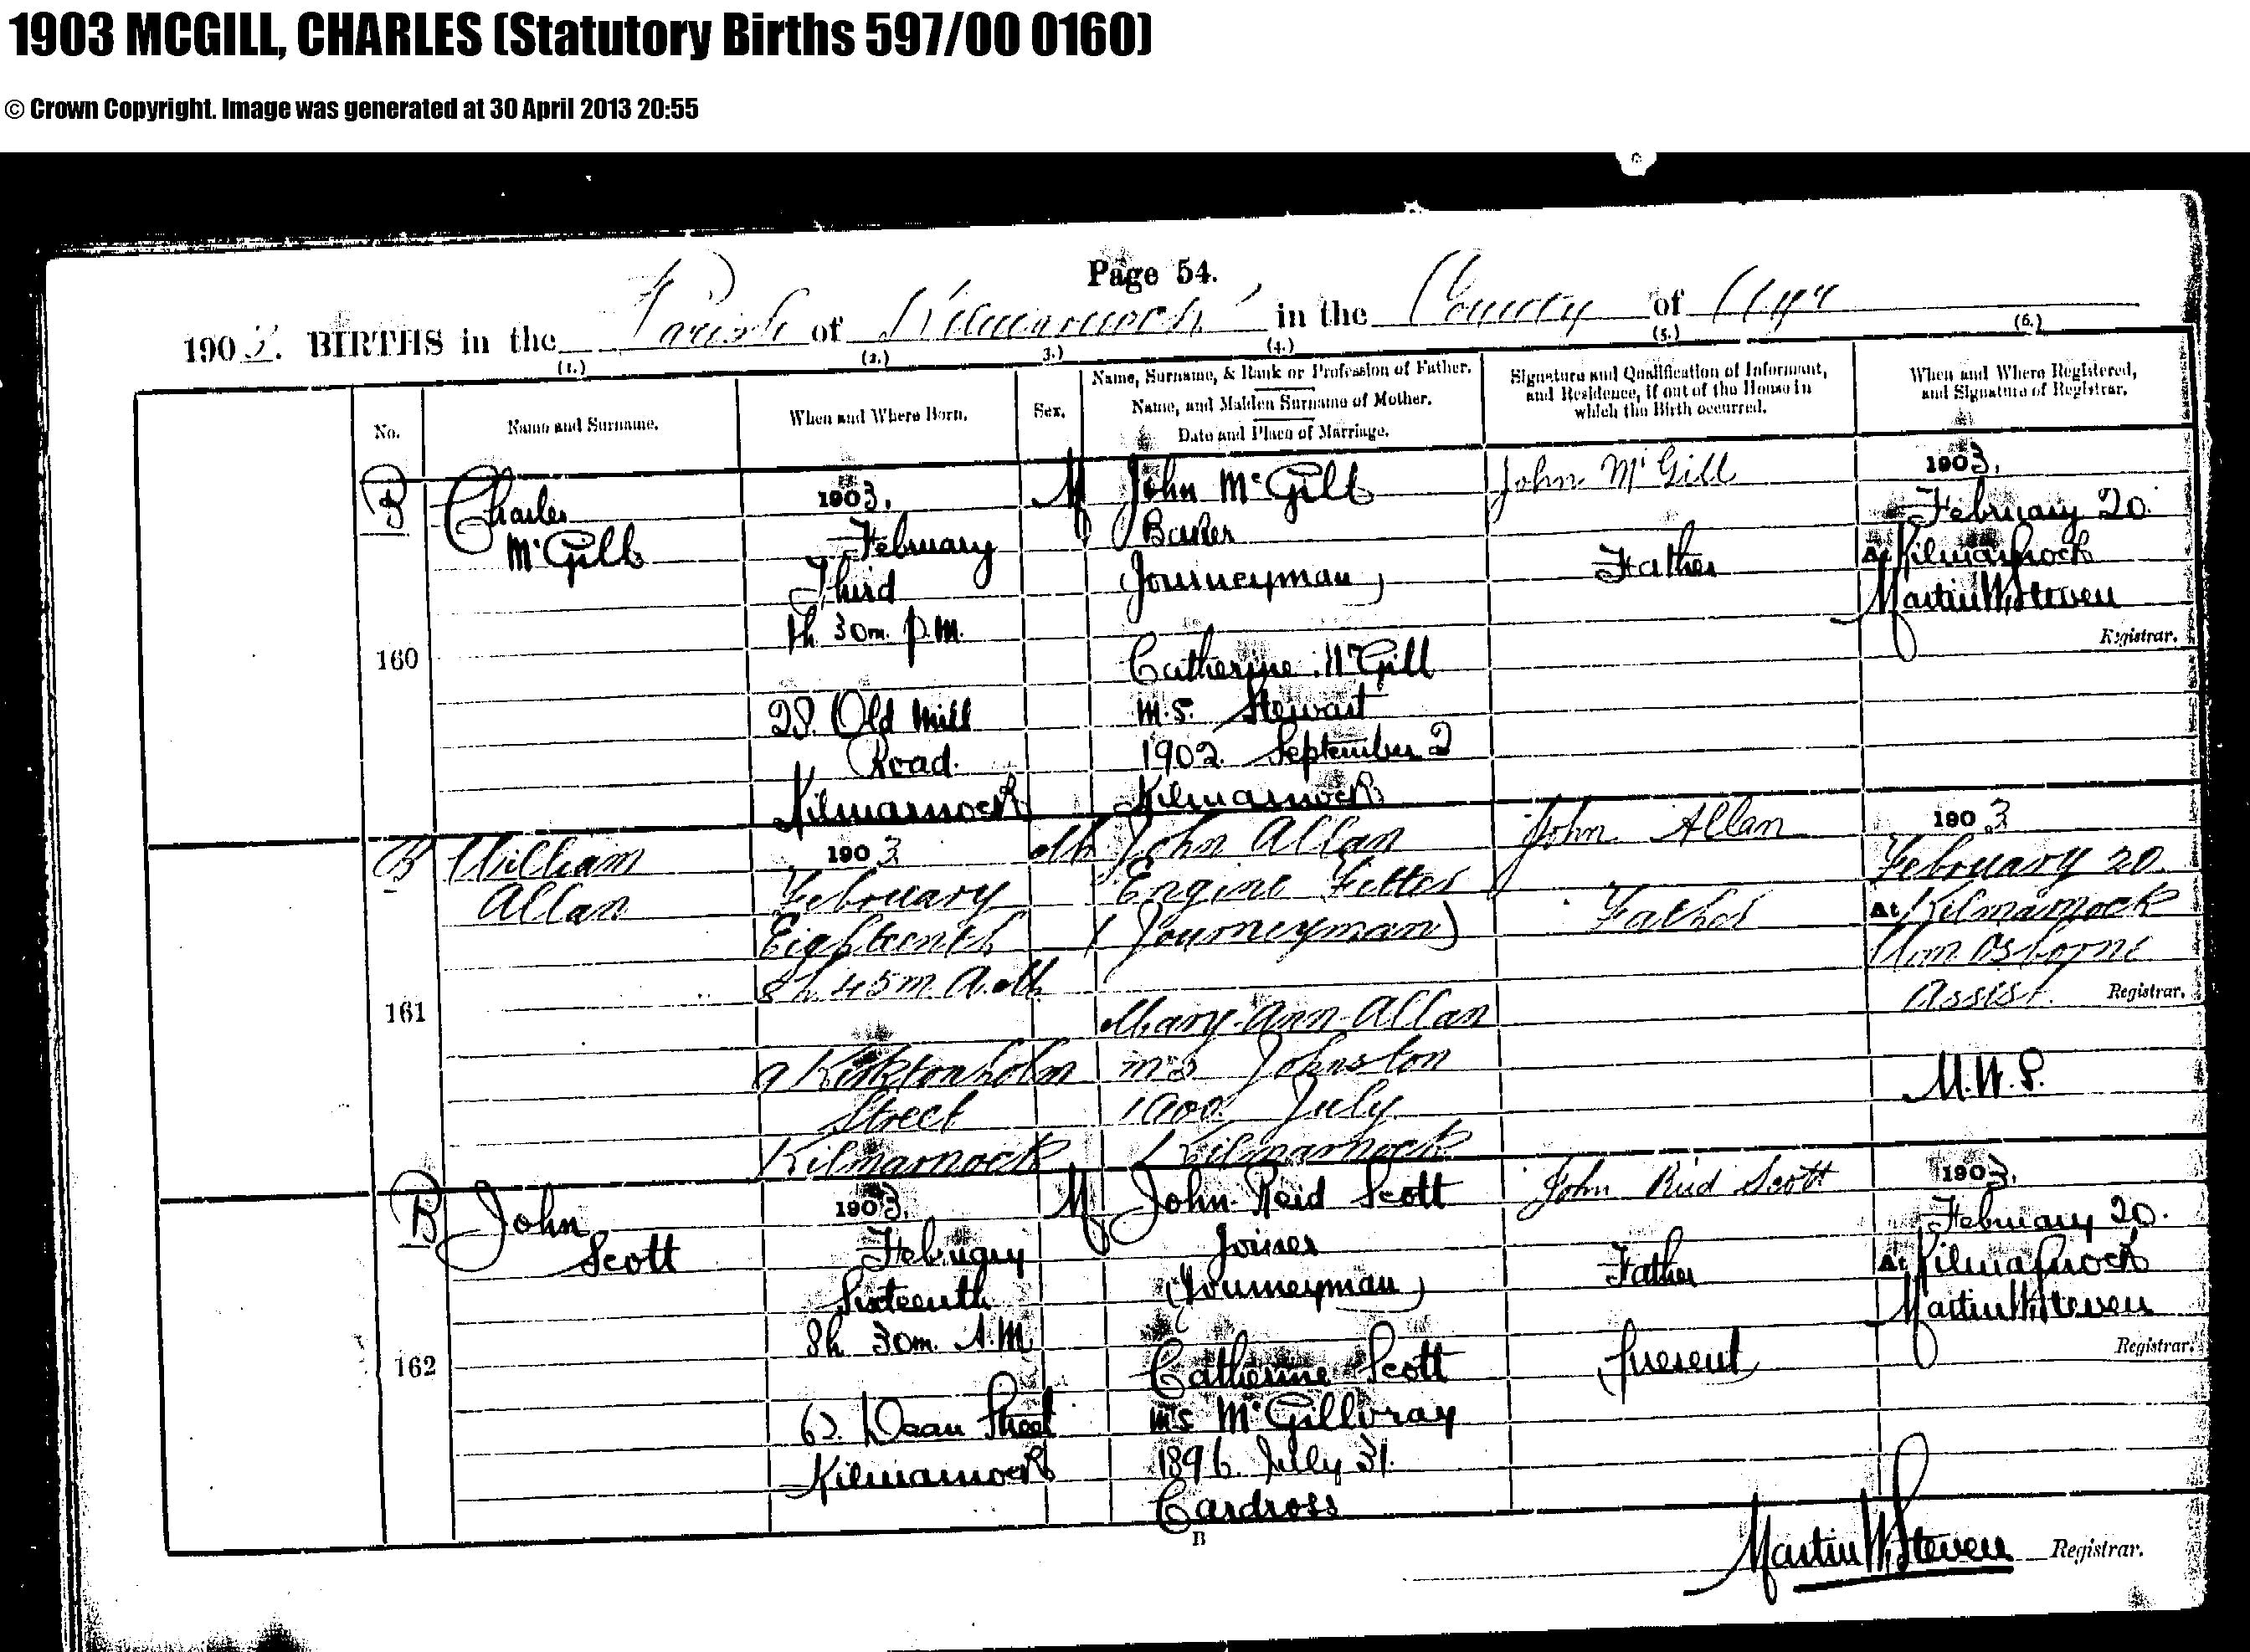 1903 MCGILL, CHARLES (Statutory Births 597/00 0160)
© Crown Copyright. Image was generated at 30 April 2013 20:55
Page 54.
1903. BIRTHS in the Parish of Kilmarnock in the County of Ayr
(1.) (2.) 3.) (4.) (5.) (6.)
No.
Name and Surname.
When and Where Born.
Sex.
Name, Surname, & Rank or Profession of Father.
Name, and Maiden Surname of Mother.
Date and Place of Marriage.
Signature and Qualification of Informant,
and Residence, if out of the House in
which the Birth occurred.
When and Where Registered,
and Signature of Registrar.
160
B
Charles
McGill
1903.
February
Third
h 30m. P.M.
28 Old Mill
Road.
Kilmarnock
M
John McGill
Baker
(Journeyman)
Catherine McGill
m.s. Stewart
1902. September 2
Kilmarnock
John McGill
Father
1903.
February 20
At Kilmarnock
Martin W. Steven
Registrar.
161
B
William
Allan
1903
February
Eighteenth
8h. 45m. A.M.
9 Kirktonholm
Street
Kilmarnock
M
John Allan
Engine Fitter
(Journeyman)
Mary Ann Allan
m.s Johnston
1900. July
Kilmarnock
John Allan
Father
1903
February 20.
At Kilmarnock
Wm. Osborne
Assist. Registrar.
M.W.S.
162
B
John
Scott
1903.
February
Sixteenth
8h 30m. A.M.
Dean Street
Kilmarnock
M
John Reid Scott
Joiner
(Journeyman)
Catherine Scott
m.s McGillvray
1896. July 31.
Cardross
John Reid Scott
Father
Present
1903.
February 20.
At Kilmarnock
Martin W. Steven
Registrar.
B
Martin W. Steven Registrar.